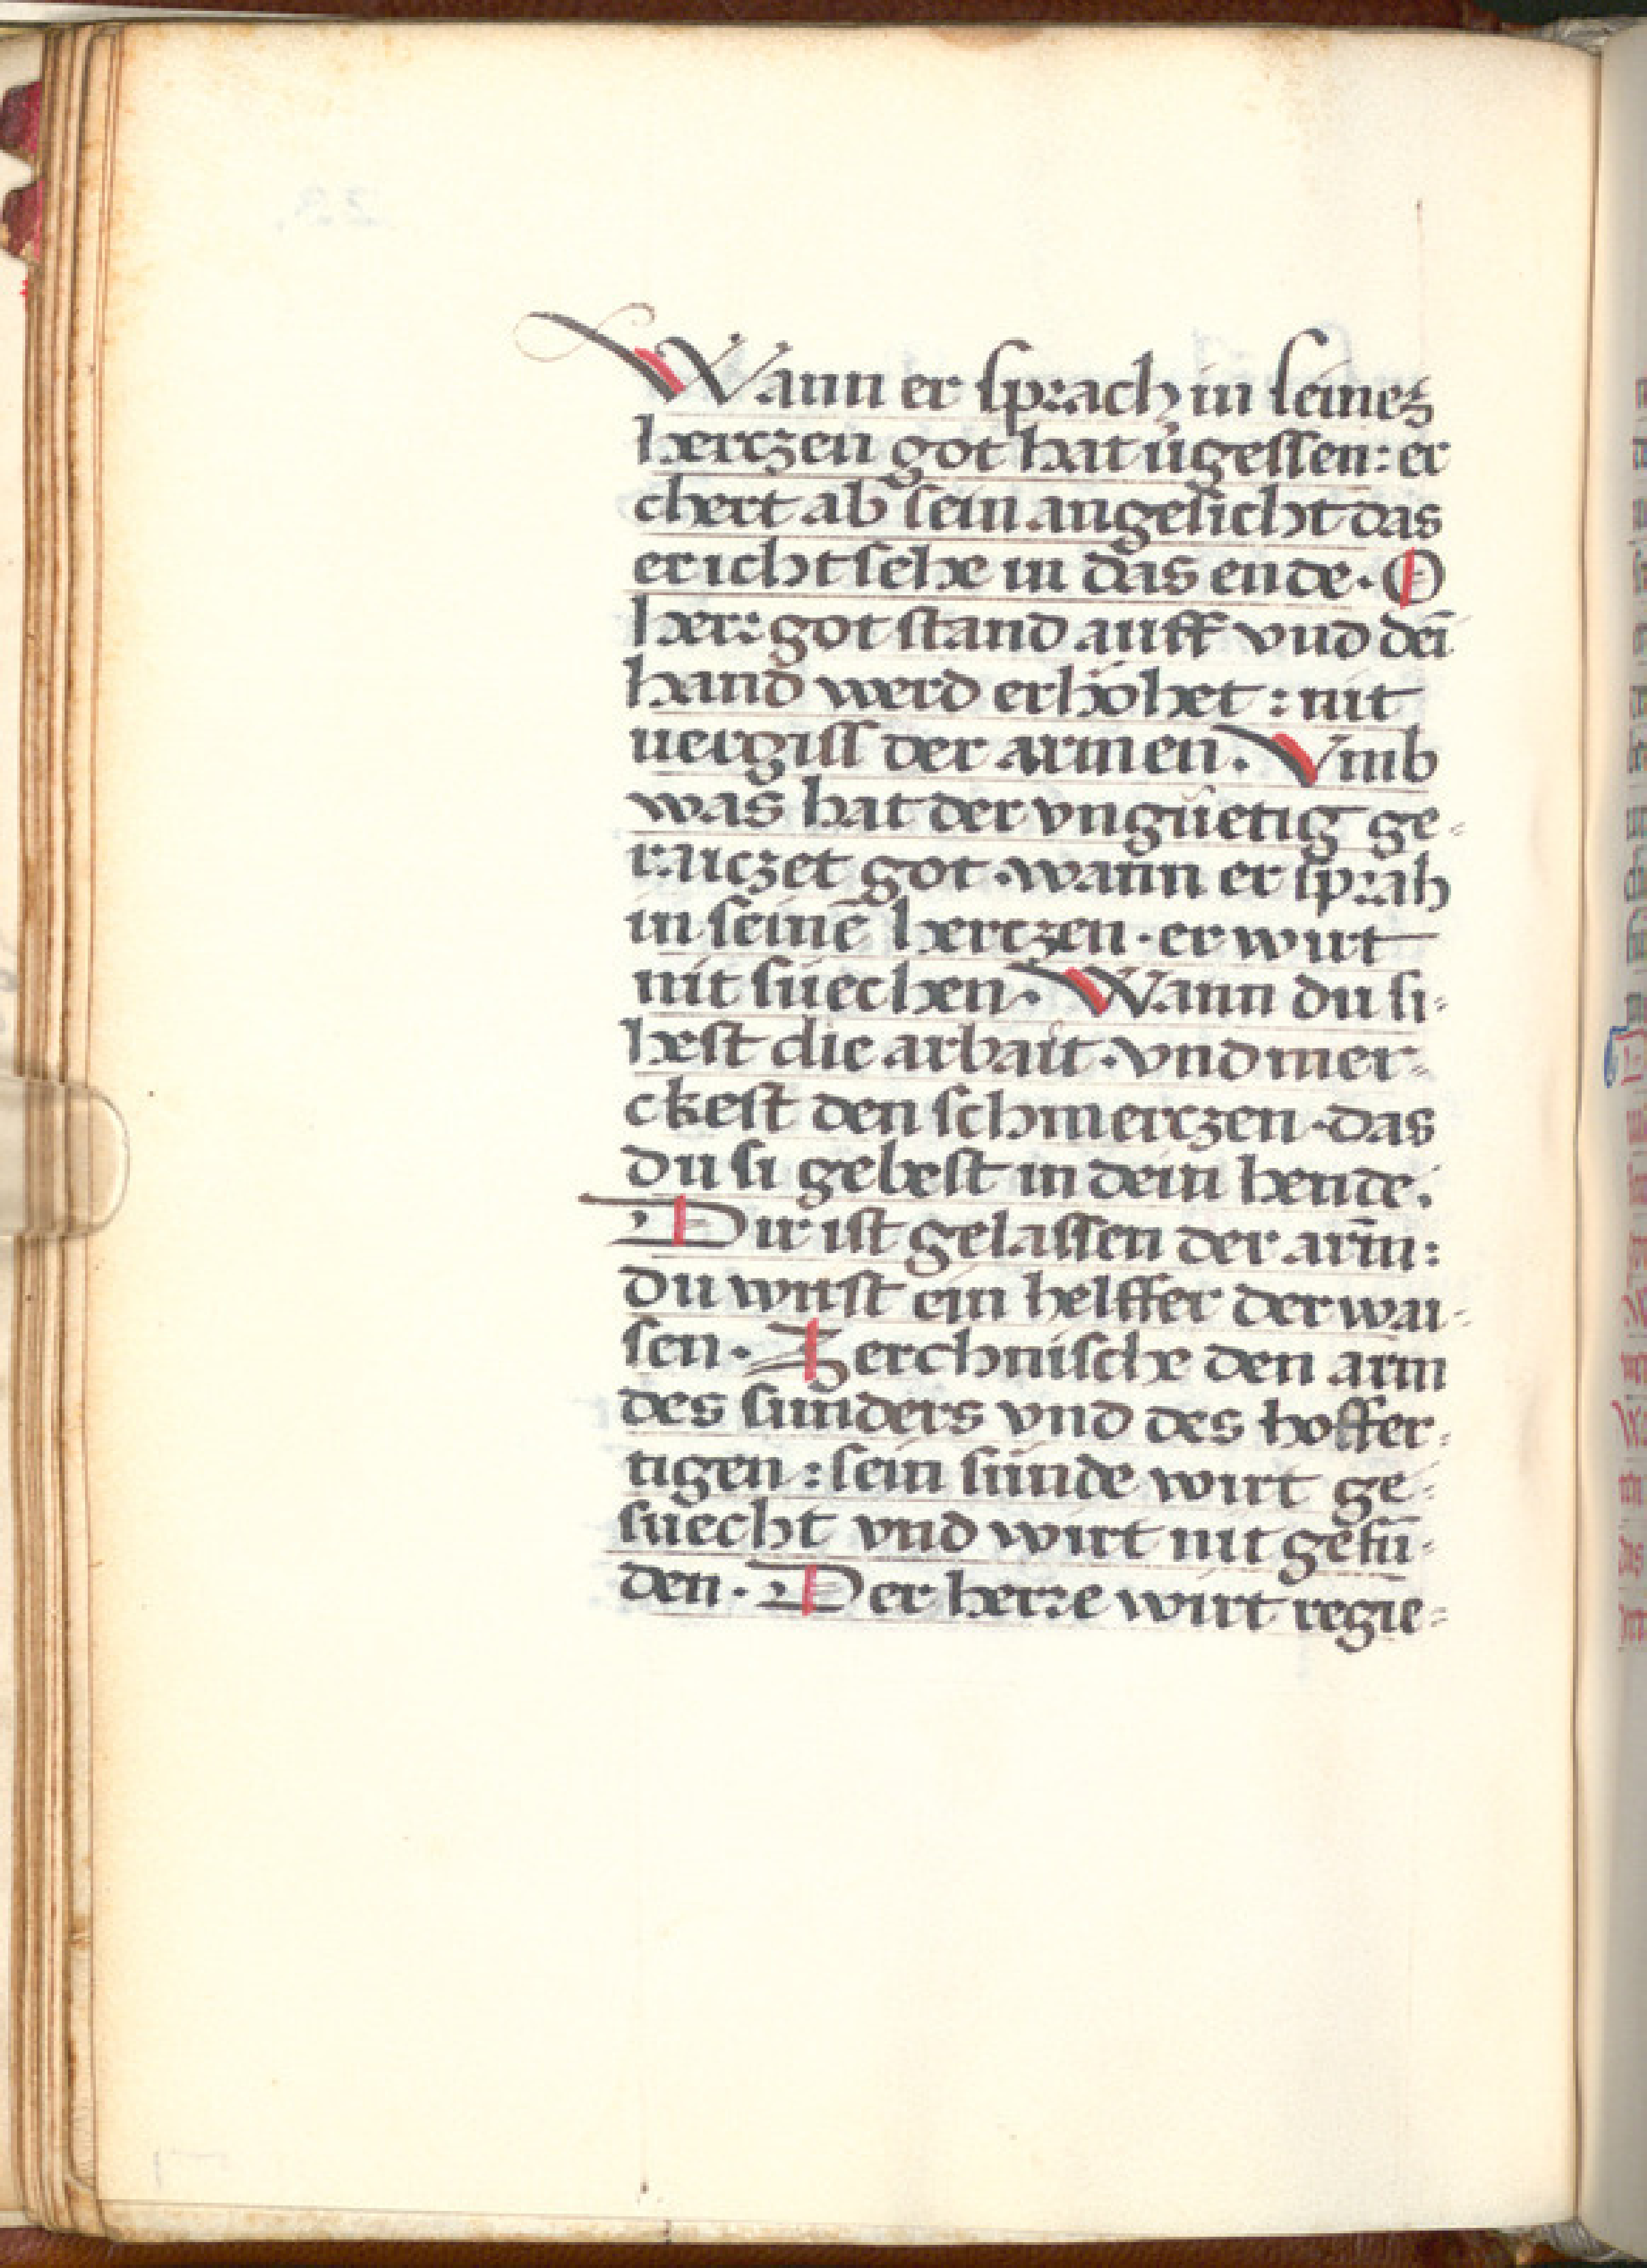 Wann er sprach in seinez
herczen got hat u̇gessen: er
chert ab sein angesicht das
er icht sehe in das ende. O
herr got stand auff vnd dei̅
hand werd erhöhet: nit
uergiss der armen. Vmb
was hat der vngüetig ge-
raiczet got. wann er sprah
in seine̅ herczen. er wirt
nit süechen. Wann du si-
hest die arbait. vnd mer-
ckest den schmerczen. das
du si gebest in dein hende.
Dir ist gelassen der arm:
du wirst ein helffer der wai-
sen. Zerchnische den arm
des sünders vnd des hoffer-
tigen: sein sünde wirt ge-
süecht vnd wirt nit gefu̅-
den. Der herre wirt regie-